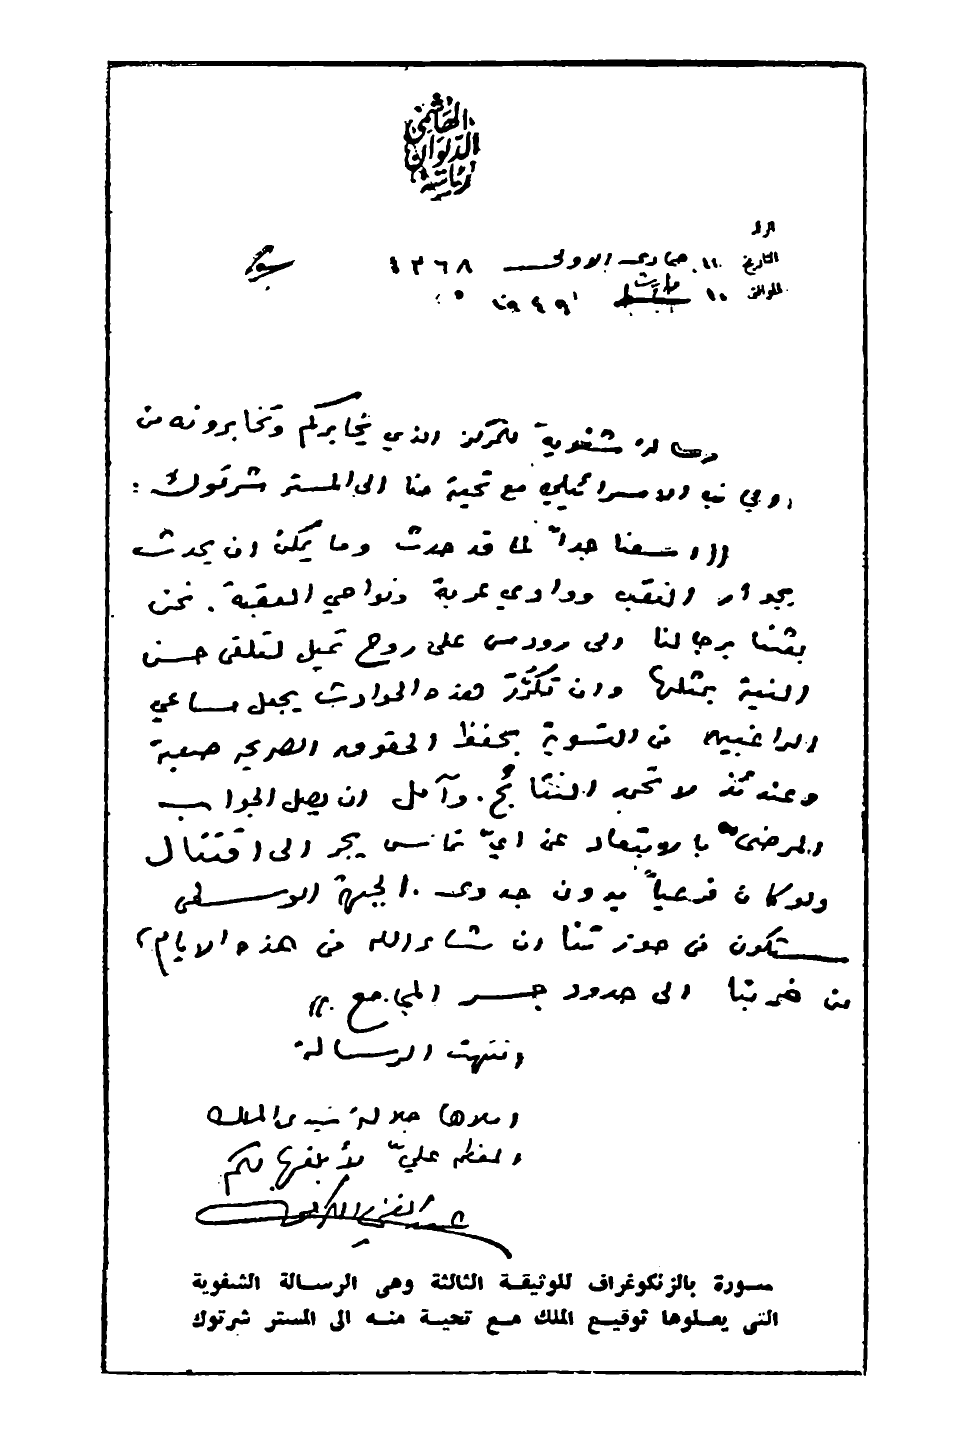 الهاشمي
الديوان
رئاسة
الرقم
التاريخ ١١ جمادى الاولى ١٣٦٨
الموافق ١٠ مارث شباط ١٩٤٩
رسالة شفوية للمركز الذي يخابركم وتخابرونه من
الجانب الاسرائيلي مع تحية منا الى المستر شرتوك :
((اسفنا جداً لما قد حدث وما يمكن ان يحدث
بجوار النقب ووادي عربة ونواحي العقبة . نحن
بعثنا برجالنا الى رودس على روح تميل لتلقي حسن
النية بمثلها وان تكرّر هذه الحوادث يجعل مساعي
الراغبين في التسوية بحفظ الحقوق الصريحة صعبة
وعندئذ لا تحمد النتائج . وآمل ان يصل الجواب
المرضي بالابتعاد عن ايّ تماس يجر الى اقتتال
ولو كان فرعياً بدون جدوى . الجبهة الوسطى
ستكون في حوزتنا ان شاء الله في هذه الايام
من غربنا الى حدود جسر المجامع . ))
انتهت الرسالة
املاها جلالة سيدي الملك
المعظم عليّ لأبلغها لكم
عبد الغني الكرمي
صورة بالزنكوغراف للوثيقة الثالثة وهى الرسالة الشفوية
التى يعلوها توقيع الملك مع تحية منه الى المستر شرتوك